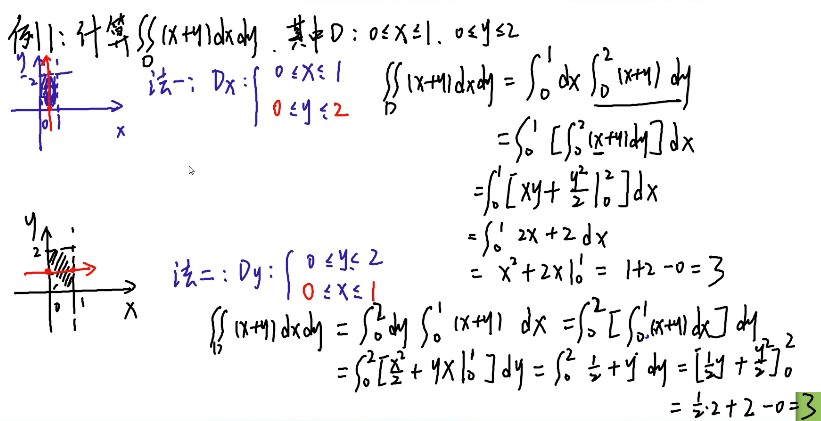 例11：计算∬_D (x+y)dxdy. 其中D：0≤x≤1. 0≤y≤2
y 2 0 1 x
法一：Dx：{ 0≤x≤1
0≤y≤2
∬_D (x+y)dxdy = ∫_0^1 dx ∫_0^2 (x+y) dy
= ∫_0^1 [∫_0^2 (x+y)dy] dx
= ∫_0^1 [xy + y²/2 |_0^2] dx
= ∫_0^1 2x+2 dx
= x²+2x|_0^1 = 1+2-0 = 3
y 2 0 1 x
法二：Dy：{ 0≤y≤2
0≤x≤1
∬_D (x+y)dxdy = ∫_0^2 dy ∫_0^1 (x+y) dx = ∫_0^2 [∫_0^1 (x+y)dx] dy
= ∫_0^2 [x²/2 + yx|_0^1] dy = ∫_0^2 1/2 + y dy = [1/2 y + y²/2]_0^2
= 1/2·2+2-0=3